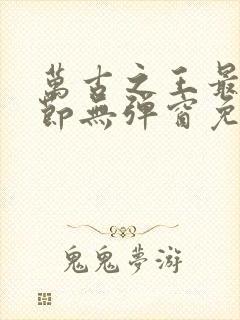 萬古之王最
節無彈窗免
鬼鬼夢游